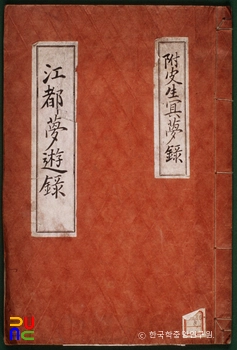 附皮生冥夢錄
江都夢遊錄
© 한국학중앙연구원